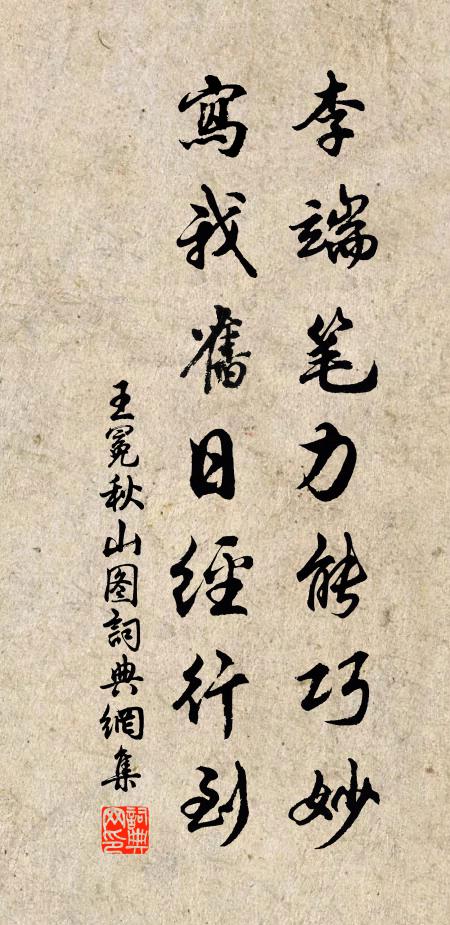 李端笔力能巧妙
寫我舊日經行到
王冕秋山图詞典網集
詞典網印